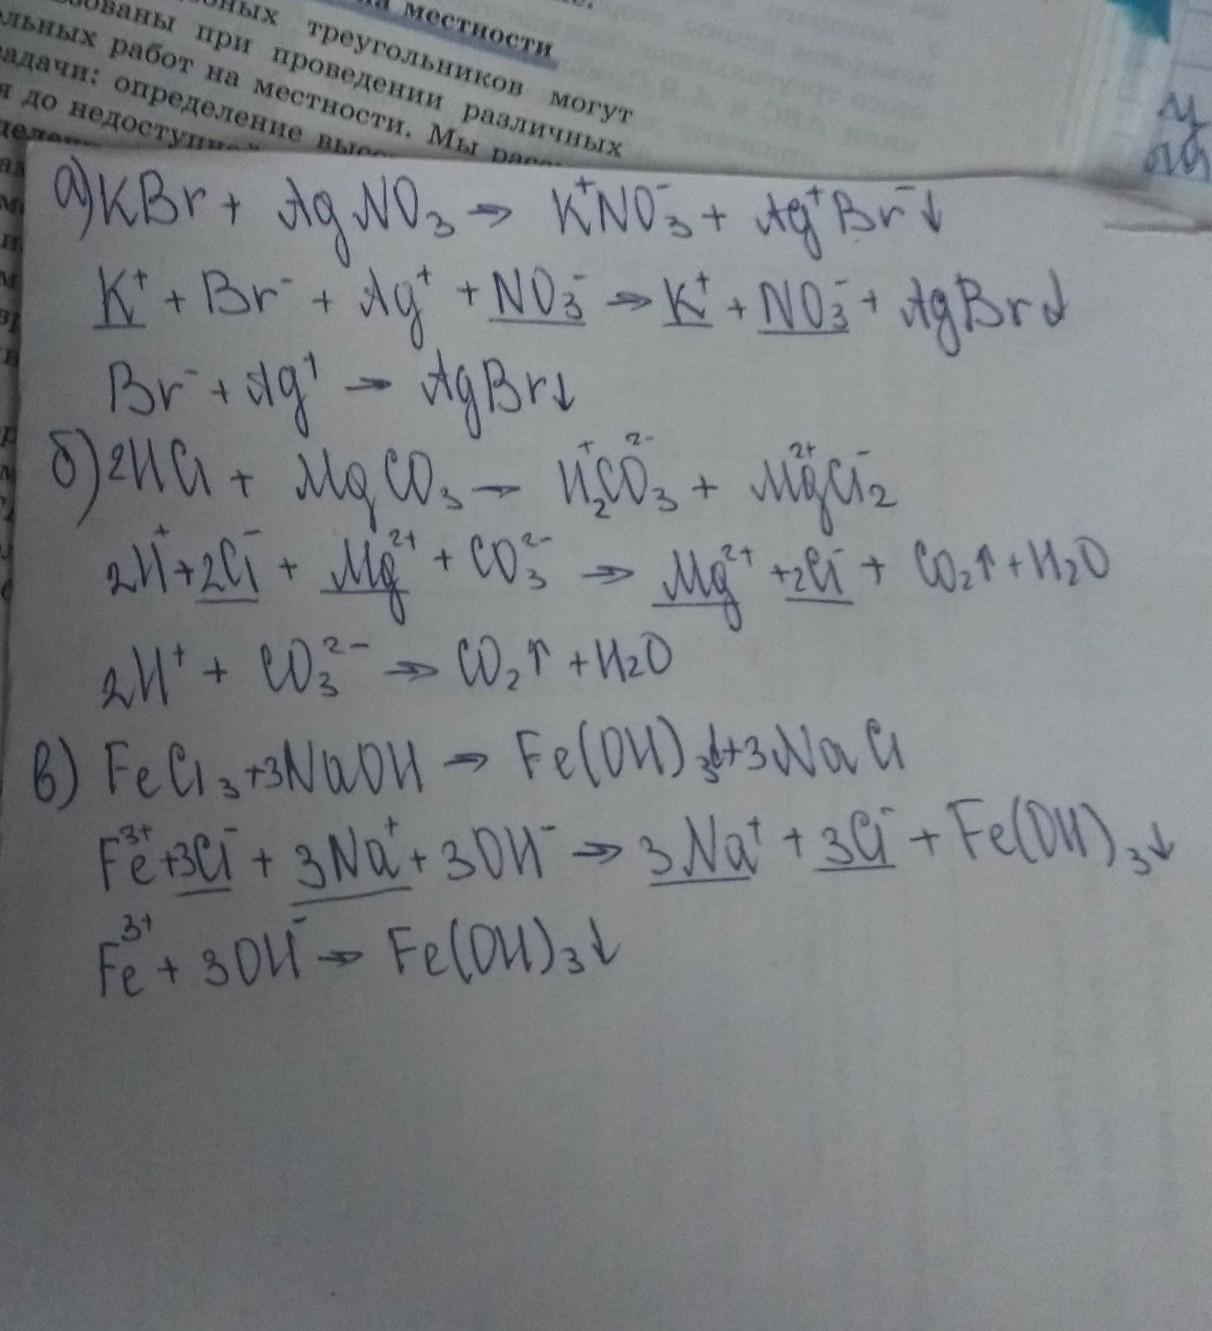 местности
треугольников могут
при проведении различных
работ на местности. Мы
определение
до
а) KBr + AgNO₃ → K⁺NO₃⁻ + Ag⁺Br⁻↓
K⁺ + Br⁻ + Ag⁺ + NO₃⁻ → K⁺ + NO₃⁻ + AgBr↓
Br⁻ + Ag⁺ → AgBr↓
б) 2HCl + MgCO₃ → H₂⁺CO₃²⁻ + Mg²⁺Cl₂⁻
2H⁺ + 2Cl⁻ + Mg²⁺ + CO₃²⁻ → Mg²⁺ + 2Cl⁻ + CO₂↑ + H₂O
2H⁺ + CO₃²⁻ → CO₂↑ + H₂O
в) FeCl₃ + 3NaOH → Fe(OH)₃↓ + 3NaCl
Fe³⁺ + 3Cl⁻ + 3Na⁺ + 3OH⁻ → 3Na⁺ + 3Cl⁻ + Fe(OH)₃↓
Fe³⁺ + 3OH⁻ → Fe(OH)₃↓